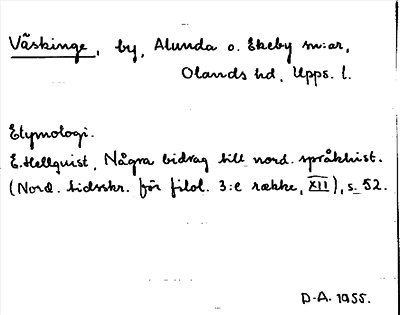 Väskinge, by, Alunda o. Ekeby sn:ar,
Olands hd, Upps. l.
Etymologi.
E. Hellquist, Några bidrag till nord. språkhist.
(Nord. tidsskr. för filol. 3:e række, XII), s. 52.
D.-A. 1955.